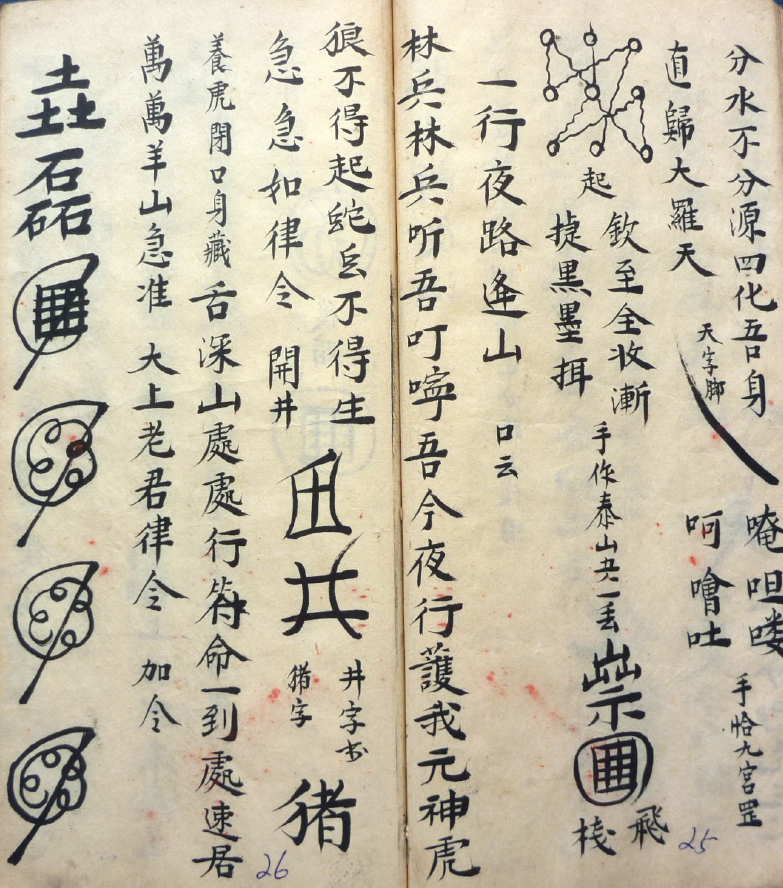 分水不分源四化吾身
直歸大羅天
天字脚
唵呾喽
呵噲吐
手恰九宮罡
起
欽至全收漸
捷黑墨挕
手你泰山
飛
棧
25
一行夜路逢山
口云
林兵林兵听吾叮嚀吾今夜行護我元神虎
狼不得起蛇不得生
急急如律令
開井
井字书
猪字
猪
養虎閉口身藏舌深山處處行符命一到處速居
萬萬羊山急准
大上老君律令
加令
磊
26